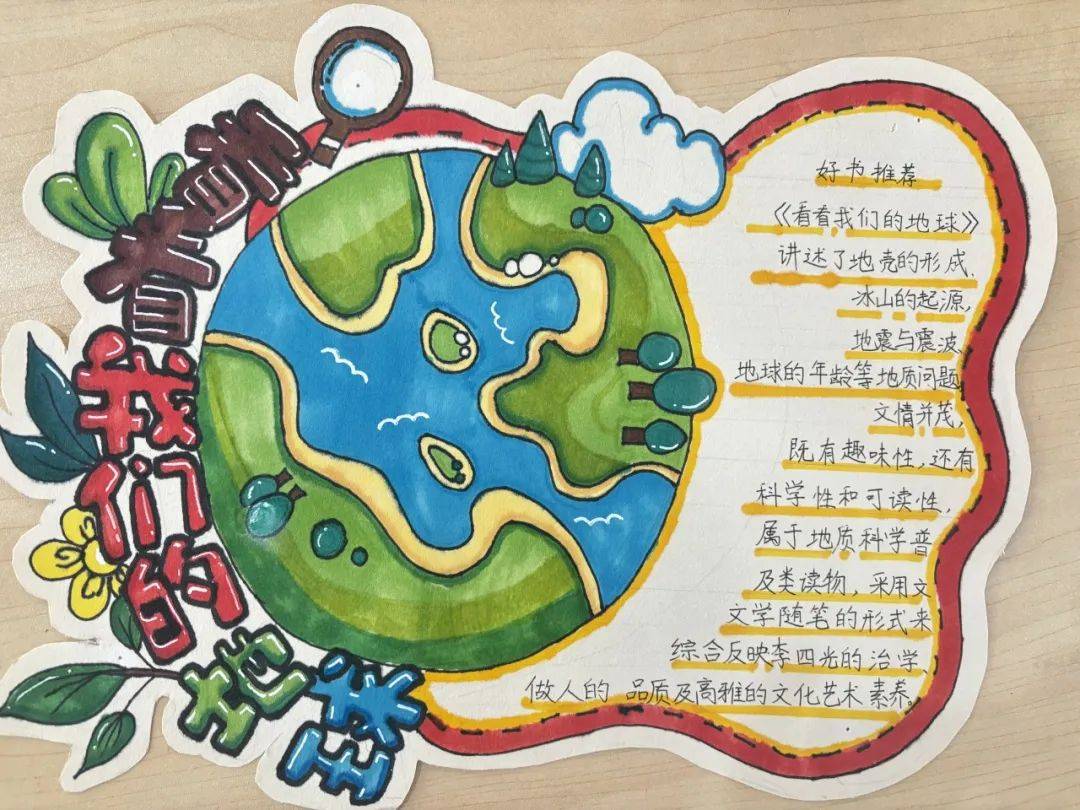 看看我们的地球
好书推荐
《看看我们的地球》
讲述了地壳的形成、
冰山的起源,
地震与震波、
地球的年龄等地质问题,
文情并茂,
既有趣味性,还有
科学性和可读性,
属于地质科学普
及类读物,采用文
文学随笔的形式来
综合反映李四光的治学、
做人的品质及高雅的文化艺术素养。